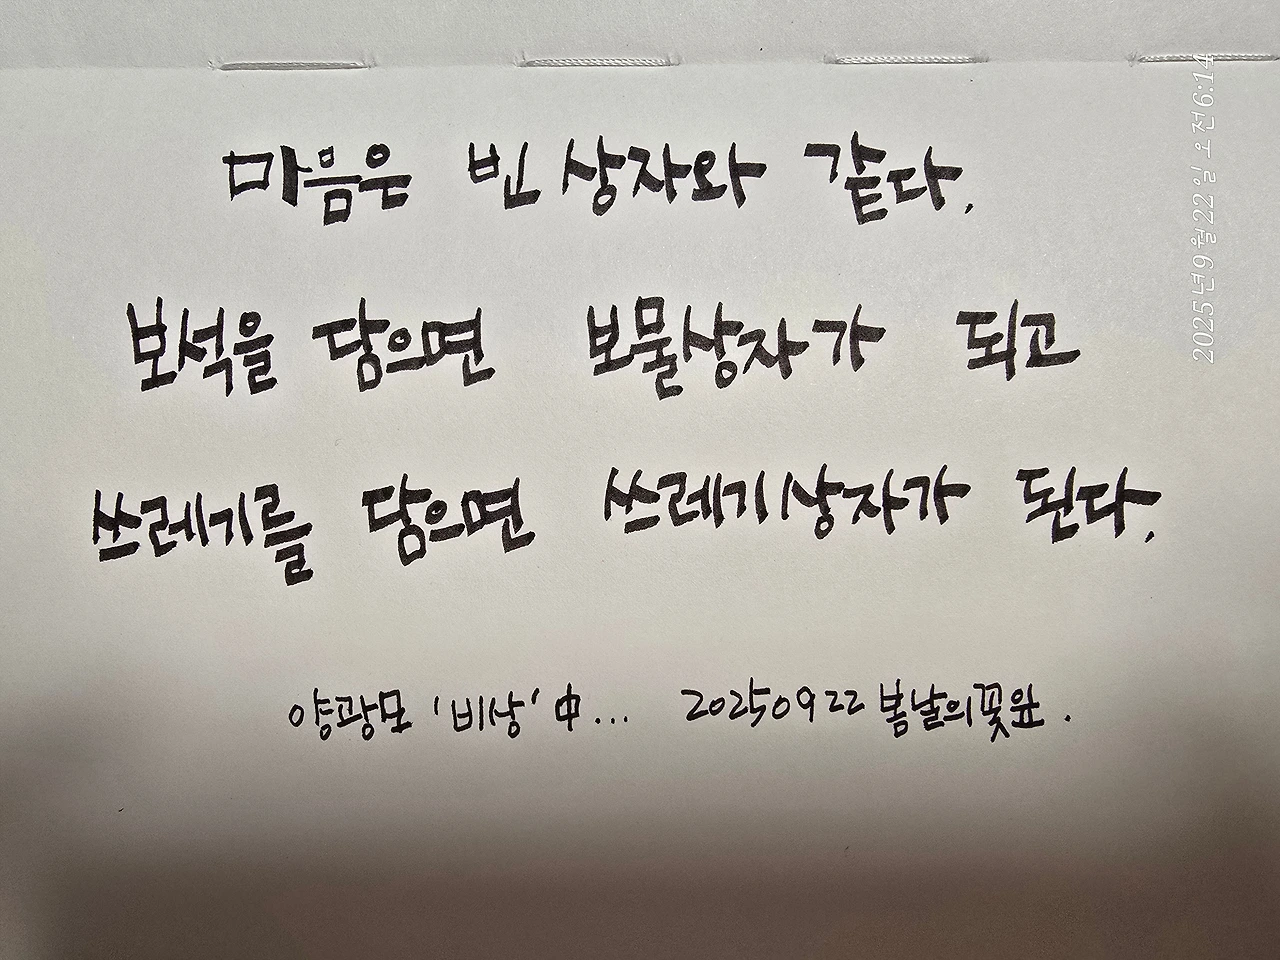 마음은 빈 상자와 같다.
보석을 담으면 보물상자가 되고
쓰레기를 담으면 쓰레기상자가 된다.
양광모 '비상' 中... 20250922 봄날의꽃잎.
2025년 9월 22일 오전 6:14